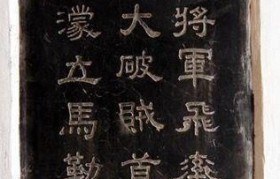 將軍飛率
大破賊首
濛立馬勒